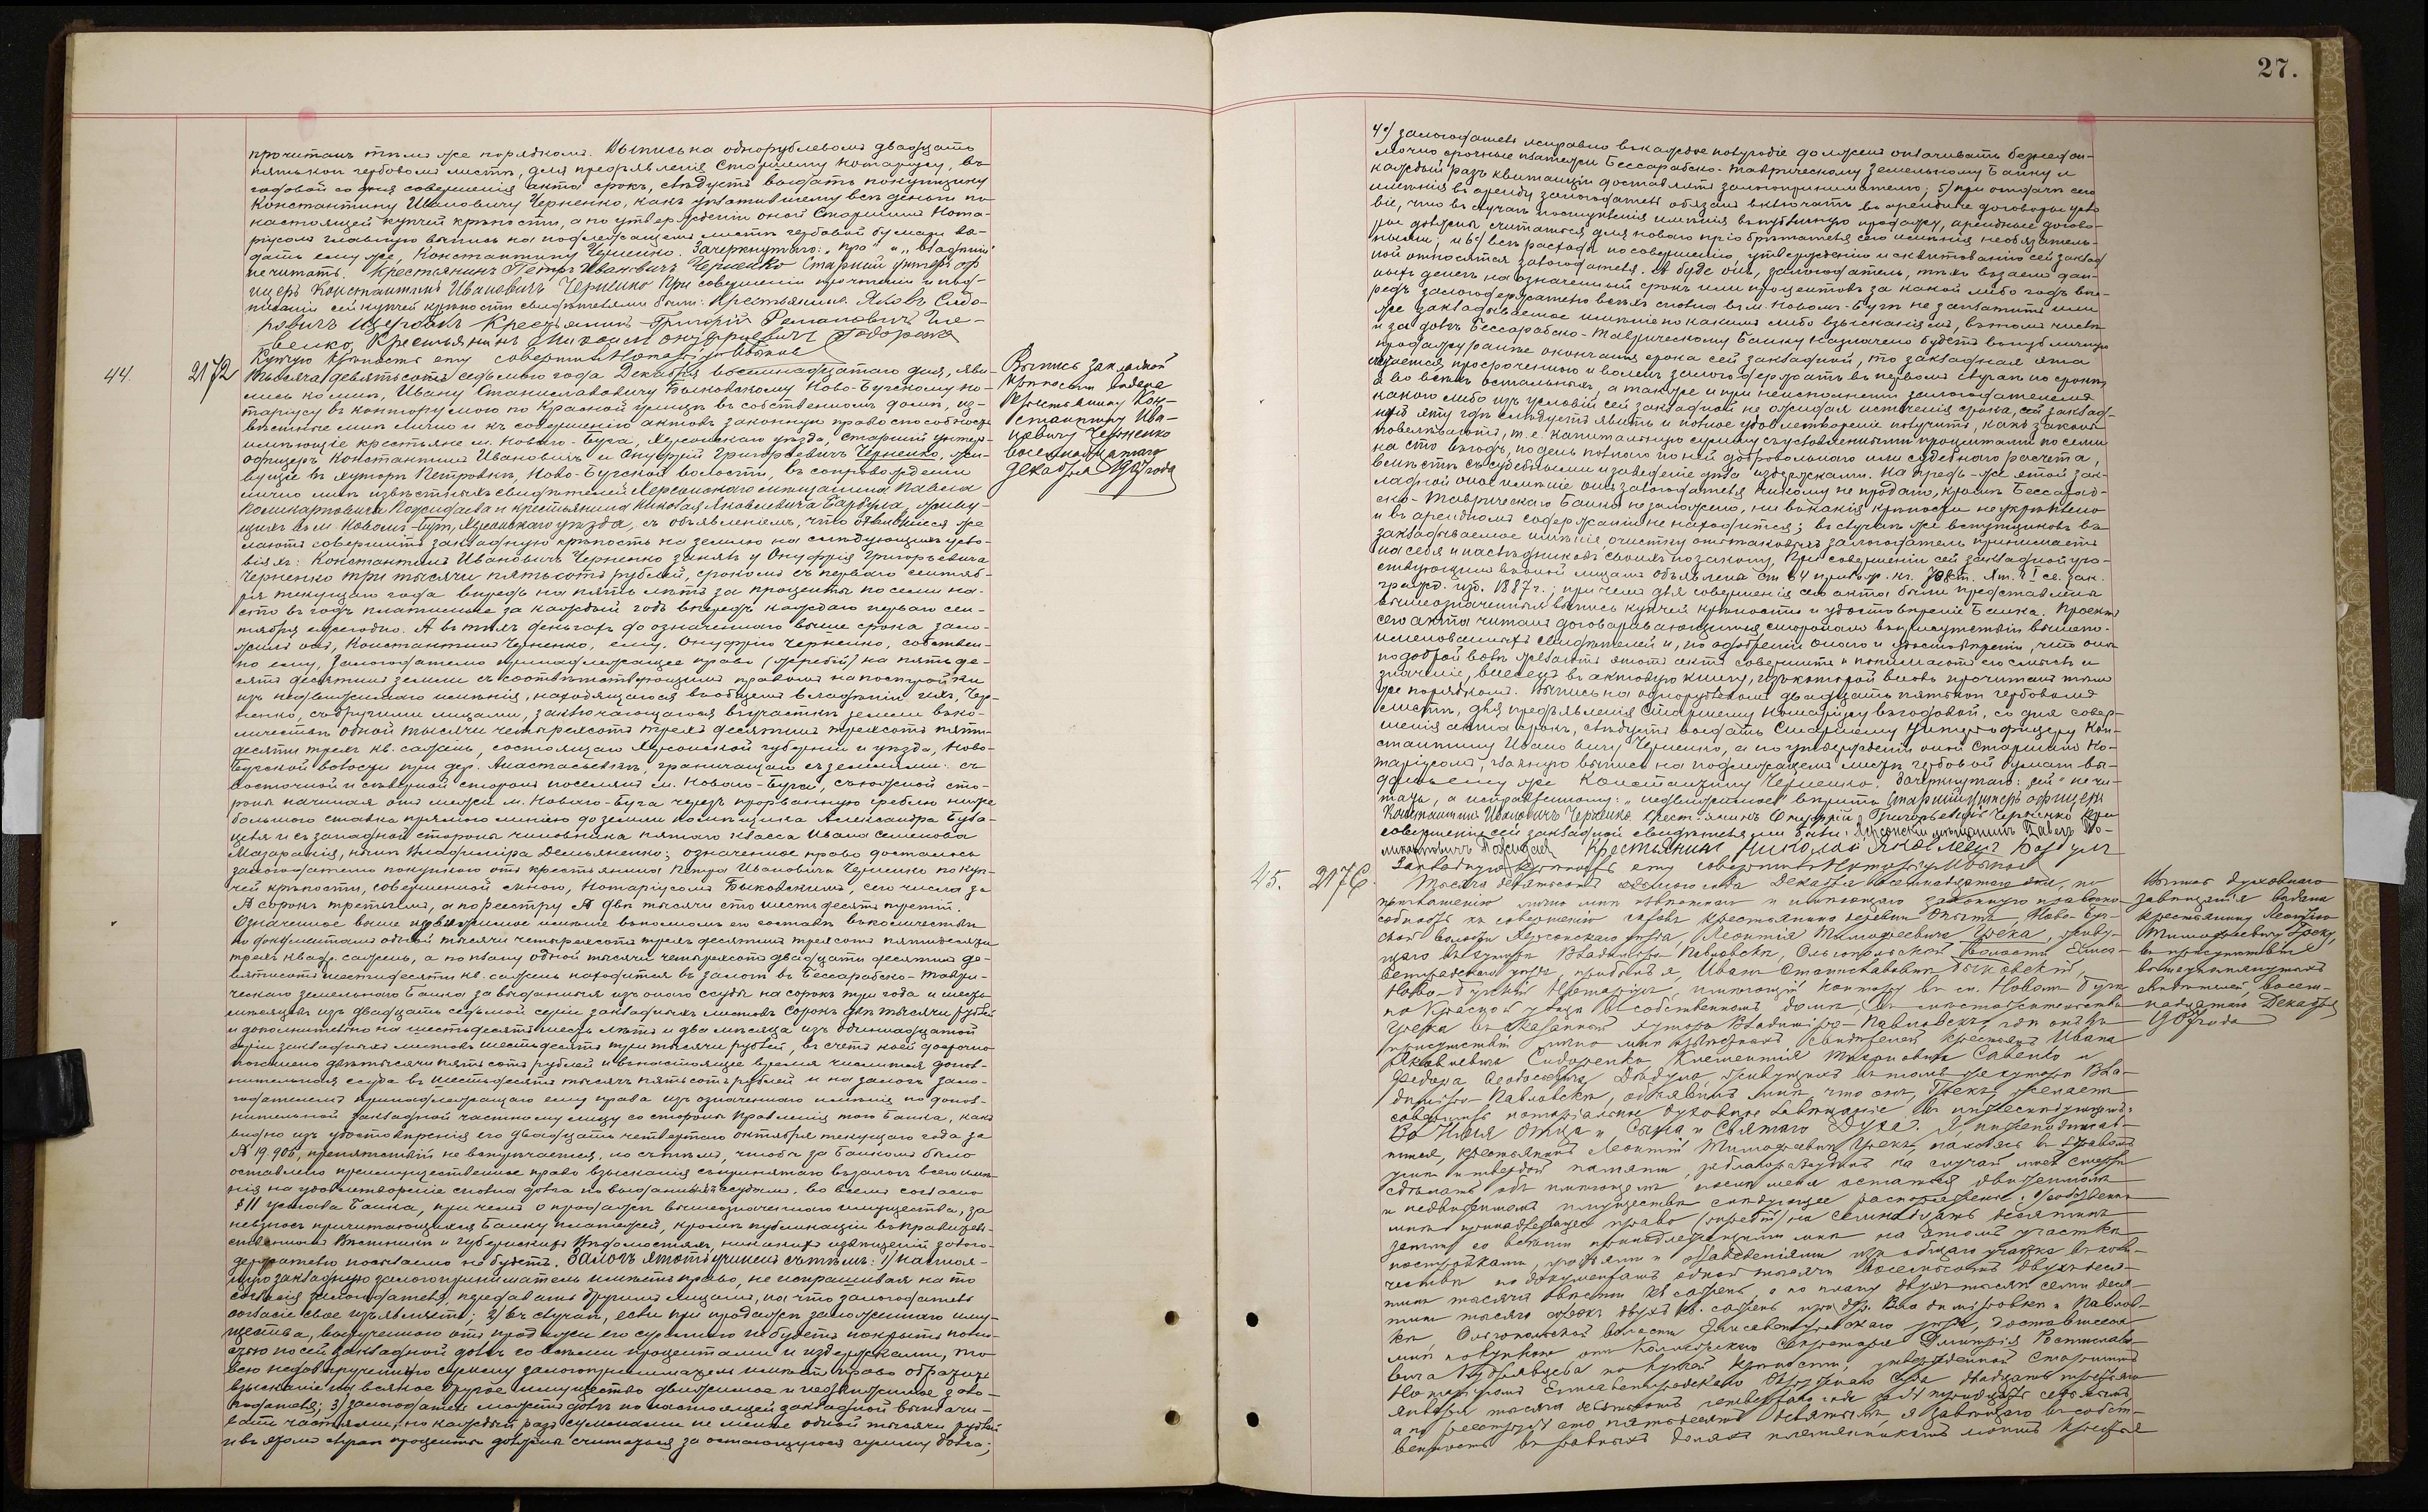 27.
прочитанъ тѣмъ же порядкомъ. Выпись на однорублевомъ двадцать
пятькоп гербовомъ листѣ, для предъявленія Старшему Нотаріусу, въ
годовой со дня совершенія акта срокъ, слѣдуетъ выдать покупщику
Константину Ивановичу Черненко, какъ уплатившему всѣ деньги по
настоящей купчей крѣпости, а по утвержденіи оной Старшимъ Нота-
ріусомъ главную выпись на подлежащемъ листѣ гербовой бумаги вы-
дать ему же, Константину Черненко. Зачеркнутаго: „про" и „владній"
не читать. Крестьянинъ Петръ Ивановичъ Черненко Старший унтеръ оф
ицеръ Константинъ Ивановичъ Черненко При совершеніи прочтеніи и под-
писаніи сей купчей крѣпости свидѣтелями были: Крестьянинъ Яковъ Сидо-
ровичъ Крестьянинъ Григорій Романовичъ
Крестьянинъ Михаилъ Онуфріевичъ
Купчую крѣпость ету совершилъ Нотаріусъ
44.
2172
Тысяча девятьсотъ седьмого года Декабря восемнадцатаго дня, яви-
лись ко мнѣ, Ивану Станиславовичу Быковскому Ново-Бугскому но-
таріусу въ контору мою по Красной улицѣ въ собственномъ домѣ, из-
вѣстные мнѣ лично и къ совершенію актовъ законную правоспособность
имѣющіе крестьяне м. Новаго-Буга, Херсонскаго уѣзда, старшій унтеръ-
офицеръ Константинъ Ивановичъ и Онуфрій Григорьевичъ Черненко, жи-
вущіе въ хуторѣ Петровкѣ, Ново-Бугской волости, въ сопровожденіи
лично мнѣ извѣстныхъ свидѣтелей Херсонскаго мѣщанина Павла
Поликарповича Пожидаева и крестьянина Николая Яковлевича Бардула, живу-
щихъ въ м. Новомъ-Бугѣ, Херсонскаго уѣзда, съ объявленіемъ, что явившіеся же
лаютъ совершить закладную крѣпость на землю на слѣдующихъ усло-
віяхъ: Константинъ Ивановичъ Черненко занялъ у Онуфрія Григорьевича
Черненко три тысячи пятьсотъ рублей, срокомъ съ перваго сентяб-
ря текущаго года впредь на пять лѣтъ за проценты по семи на
сто въ годъ платимые за каждый годъ впередъ каждаго перваго сен-
тября ежегодно. А въ тѣхъ деньгахъ до означеннаго выше срока зало-
жилъ онъ, Константинъ Черненко, ему, Онуфрію Черненко, собствен-
но ему, залогодателю принадлежащее право (жребій) на пятьде-
сятъ десятинъ земли съ соотвѣтствующимъ правомъ на постройки
изъ недвижимаго имѣнія, находящагося въ общемъ владѣніи ихъ, Чер-
ненко, съ другими лицами, заключающагося въ участкѣ земли въ ко-
личествѣ одной тысячи четырехсотъ трехъ десятинъ трехсотъ пяти-
десяти трехъ кв. сажень, состоящаго Херсонской губерніи и уѣзда, Ново-
Бугской волости при дер. Анастасьевкѣ, граничащаго съ землями: съ
восточной и сѣверной сторонъ поселянъ м. Новаго-Буга, съ южной сто-
роны начиная отъ межи м. Новаго-Буга черезъ прорванную греблю ниже
большого ставка прямою линіею до земли помѣщика Александра
и съ западной стороны чиновника пятаго класса Ивана Семенова
Мазаракія, нынѣ Владиміра Демьяненко; означенное право досталось
залогодателю покупкою отъ крестьянина Петра Ивановича Черненко по куп-
чей крѣпости, совершенной мною, Нотаріусомъ Быковскимъ, сего числа за
№ сорокъ третьимъ, а по реестру № двѣ тысячи сто шестьдесятъ третій.
Означенное выше недвижимое имѣніе въ полномъ его составѣ въ количествѣ
по документамъ одной тысячи четырехсотъ трехъ десятинъ трехсотъ пятидесяти
трехъ квадр. сажень, а по плану одной тысячи четырехсотъ двадцати десятинъ де-
вятисотъ шестидесяти кв. сажень находится въ залогѣ въ Бессарабско-Таври-
ческомъ земельномъ Банкѣ за выданныя изъ онаго ссуды на сорокъ три года и шесть
мѣсяцевъ изъ двадцать седьмой серіи закладныхъ листовъ сорокъ двѣ тысячи рублей
и дополнительно на шестьдесятъ шесть лѣтъ и два мѣсяца изъ одиннадцатой
серіи закладныхъ листовъ шестьдесятъ три тысячи рублей, въ счетъ коей досрочно
погашено двѣ тысячи пятьсотъ рублей и въ настоящее время числится допол-
нительная ссуда въ шестьдесятъ тысячъ пятьсотъ рублей и на залогъ зало-
годателемъ принадлежащаго ему права изъ означеннаго имѣнія по допол-
нительной закладной частному лицу со стороны Правленія того Банка, какъ
видно изъ удостовѣренія его двадцать четвертаго октября текущаго года за
№ 19.906, препятствій не встрѣчается, но съ тѣмъ, чтобы за Банкомъ было
оставлено преимущественное право взысканія съ принятаго въ залогъ всего имѣ-
нія на удовлетвореніе сполна долга по выданнымъ ссудамъ, во всемъ согласно
§ 11 устава Банка, при чемъ о продажѣ вышеозначеннаго имущества, за
невзносъ причитающихся Банку платежей, кромѣ публикаціи въ Правитель-
ственномъ Вѣстникѣ и Губернскихъ Вѣдомостяхъ, никакихъ извѣщеній залого-
держателю посылаемо не будетъ. Залогъ этотъ учиненъ съ тѣмъ: 1) настоя-
щую закладную залогоприниматель имѣетъ право, не испрашивая на то
согласія залогодателя, передавать другимъ лицамъ, на что залогодатель
согласіе свое изъявляетъ; 2) въ случаѣ, если при продажѣ заложеннаго иму-
щества, вырученною отъ продажи его суммою не будетъ покрытъ полно-
стью по сей закладной долгъ со всѣми процентами и издержками, то
всю недовырученную сумму залогоприниматель имѣетъ право обратить
взысканіе на всякое другое имущество движимое и недвижимое зало-
годателя; 3) залогодатель можетъ долгъ по настоящей закладной выплачи-
вать частями, но каждый разъ суммами не менѣе одной тысячи рублей
и въ этомъ случаѣ проценты должны считаться за остающуюся сумму долга;
Выпись закладной
крѣпости выдана
Крестьянину Кон-
стантину Ива-
новичу Черненко
восемнадцатаго
декабря 1907 года
4) залогодатель исправно въ каждое полугодіе долженъ оплачивать безнедои-
мочно срочные платежи Бессарабско-Таврическому Земельному Банку и
каждый разъ квитанціи доставлять залогопринимателю; 5) при отдачѣ сего
имѣнія въ аренду залогодатель обязанъ включать въ арендные договоры усло
віе, что въ случаѣ поступленія имѣнія въ публичную продажу, арендные догово-
ры должны считаться для новаго пріобрѣтателя сего имѣнія необязатель-
ными, и 6) всѣ расходы по совершенію, утвержденію и сквитованію сей заклад
ной относятся залогодателя. А буде онъ, залогодатель, тѣхъ взаемъ дан-
ныхъ денегъ на означенный срокъ или процентовъ за какой либо годъ впе-
редъ залогодержателю всѣхъ сполна въ м. Новомъ-Бугѣ не заплатитъ или
же закладываемое имѣніе по какимъ либо взысканіямъ, въ томъ числѣ
и за долгъ Бессарабско-Таврическому Банку назначено будетъ въ публичную
продажу ранѣе окончанія срока сей закладной, то закладная эта
считается просроченною и воленъ залогодержатель въ первомъ случаѣ по срокѣ
а во всѣхъ остальныхъ, а также и при неисполненіи залогодателемъ
какого либо изъ условій сей закладной не ожидая истеченія срока, сей заклад-
ной эту гдѣ слѣдуетъ явить и полное удовлетвореніе получить, какъ законы
повелѣваютъ, т. е. капитальную сумму съ условленными процентами по семи
на сто въ годъ, по день полнаго по ней добровольнаго или судебнаго расчета,
вмѣстѣ съ судебными и за веденіе дѣла издержками. На предь-же этой зак-
ладной оное имѣніе онаго залогодателя никому не продано, кромѣ Бессараб-
ско-Таврическаго Банка не заложено, ни въ какія крѣпости не укрѣплено
и въ арендномъ содержаніи не находится; въ случаѣ же вступщиковъ въ
закладываемое имѣніе очистку отъ таковыхъ залогодатель принимаетъ
на себя и наслѣдниковъ своихъ по закону. При совершеніи сей закладной уча-
ствующимъ въ оной лицамъ объявлена
гражд. изд. 1887 г., при чемъ для совершенія сего акта были представлены
вышеозначенныя выпись купчей крѣпости и удостовѣреніе Банка. Проектъ
сего акта читанъ договаривающимся сторонамъ въ присутствіи выше-
именованныхъ свидѣтелей и, по одобреніи онаго и удостовѣреніи, что они
по доброй волѣ желаютъ этотъ актъ совершить и понимаютъ его смыслъ и
значеніе, внесенъ въ актовую книгу, изъ которой вновь прочитанъ тѣмъ
же порядкомъ. Выпись на однорублевомъ двадцать пятькоп гербовомъ
листѣ, для предъявленія Старшему Нотаріусу въ годовой, со дня совер-
шенія акта срокъ, слѣдуетъ выдать Старшему Унтеръ-офицеру Кон-
стантину Ивановичу Черненко, а по утвержденіи оной Старшимъ Но-
таріусомъ, главную выпись на подлежащемъ листѣ гербовой бумаги вы-
дать ему же Константину Черненко. Зачеркнутаго: „ей" не чи-
тать, а исправленному: „недвижимое" вѣрить. Старшій унтеръ офицеръ
Константинъ Ивановичъ Черненко Крестьянинъ Онуфрій Григорьевичъ Черненко При
совершеніи сей закладной свидѣтелями были: Херсонскій мѣщанинъ Павелъ По-
ликарповичъ Пожидаев Крестьянинъ Николай Яковлевич Бардул
Закладную крѣпость ету совершилъ Нотаріусъ
45.
2176.
Тысяча девятьсотъ седьмого года Декабря восемнадцатаго дня, по
приглашенію лично мнѣ извѣстнаго и имѣющаго законную правоспо-
собность къ совершенію актовъ крестьянина деревни Ольгинъ, Ново-Буг-
ской волости Херсонскаго уѣзда, Леонтія Тимофеевича Грека, живу-
щаго въ хуторѣ Владиміро-Павловкѣ, Ольгопольской волости Елиса-
ветградскаго уѣзда, прибылъ я, Иванъ Станиславовичъ Быковскій,
Ново-Бугскій Нотаріусъ, имѣющій контору въ м. Новомъ Бугѣ
по Красной улицѣ въ собственномъ домѣ, въ мѣстожительство
Грека въ сказанный хуторъ Владиміро-Павловскъ, гдѣ онъ въ
присутствіи лично мнѣ извѣстныхъ свидѣтелей крестьянъ Ивана
Яковлевича Сидоренко, Климентія Савенко и
Федора Феодосьевича Дѣдула, живущихъ въ томъ же хуторѣ Вла-
диміро-Павловкѣ, объявилъ мнѣ, что онъ, Грекъ, желаетъ
совершить нотаріальное духовное завѣщаніе въ нижеслѣдующемъ:
Во Имя Отца и Сына и Святаго Духа. Я, нижеподписав-
шійся, крестьянинъ Леонтій Тимофеевичъ Грекъ, находясь въ здравомъ
умѣ и твердой памяти, заблагоразсудилъ на случай моей смерти
сдѣлать объ имѣющемъ послѣ меня остаться движимомъ
и недвижимомъ имуществѣ слѣдующее распоряженіе: 1) собственно
мнѣ принадлежащее право (жребій) на семнадцать десятинъ
земли со всѣми принадлежащими мнѣ на этомъ участкѣ
постройками, и обзаведеніями изъ общаго участка въ коли-
чествѣ по документамъ одной тысячи восемьсотъ двухъ деся-
тинъ тысяча двѣсти кв. сажень, а по плану двухъ тысячъ семи деся
тинъ тысяча сорокъ двухъ кв. сажень при дер. Владиміровкѣ и Павлов-
кѣ, Ольгопольской волости Елисаветградскаго уѣзда, доставшееся
мнѣ покупкою отъ Коллежскаго Секретаря Дмитрія Ростислаов-
вича Кудрявцева по купчей крѣпости, утвержденной Старшимъ
Нотаріусомъ Елисаветградскаго Окружнаго Суда двадцать третьяго
Января тысяча девятьсотъ четвертаго года за № тридцать седьмымъ,
а по реестру № сто пятьдесятъ девятымъ, я завѣщаю въ собст-
венность въ равныхъ доляхъ племянникамъ моимъ крестья
Выпись духовнаго
завѣщанія выдана
крестьянину Леонтію
Тимофеевичу Греку,
въ присутствіи
вышеупомянутыхъ
свидѣтелей, восем-
надцатаго Декабря
1907 года